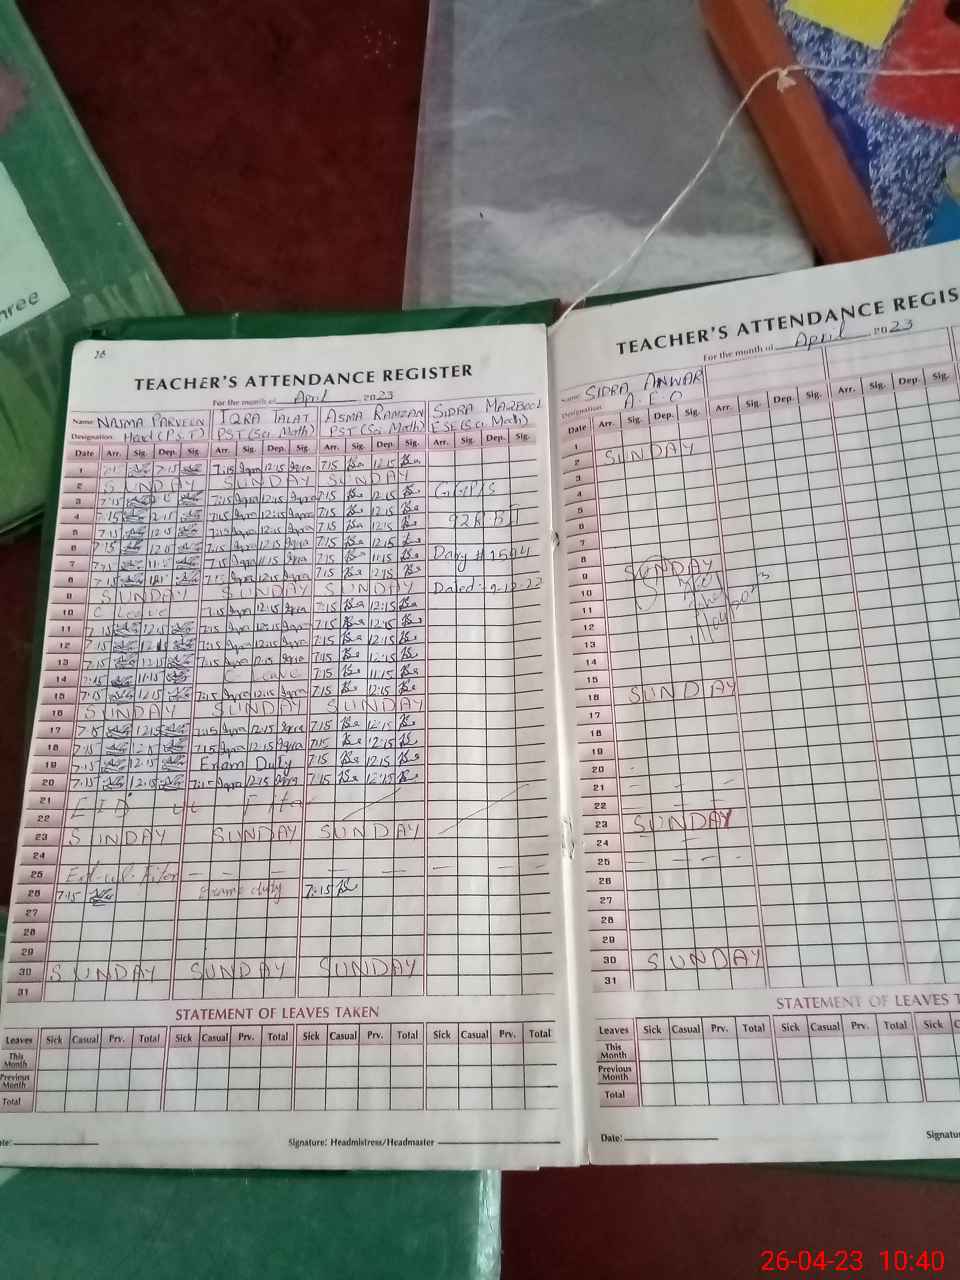 hree
28
TEACHER'S ATTENDANCE REGISTER
For the month of April 2023
Name: NAJMA PARVEEN IQRA TALAT ASMA RAMZAN SIDRA MAQBOOL
Designation: Head (P.S.T) PST (Sci. Math) PST (Sci. Math) ESE (Sci. Math)
Date Arr. Sig. Dep. Sig. Arr. Sig. Dep. Sig. Arr. Sig. Dep. Sig. Arr. Sig. Dep. Sig.
1 7:15 7:15 Iqra 12:15 Iqra 7:15 12:15
2 SUNDAY SUNDAY SUNDAY
3 7:15 7:15 Iqra 12:15 Iqra 7:15 12:15
4 7:15 12:15 7:15 Iqra 12:15 Iqra 7:15 12:15 92R BII
5 7:15 12:15 7:15 Iqra 12:15 Iqra 7:15 12:15
6 7:15 7:15 Iqra 12:15 Iqra 7:15 12:15
7 7:15 7:15 Iqra 11:15 Iqra 7:15 11:15 # 1504
8 7:15 7:15 Iqra 12:15 Iqra 7:15 12:15
9 SUNDAY SUNDAY SUNDAY Dated:- 9-12-22
10 C Leave 7:15 Iqra 12:15 Iqra 7:15 12:15
11 7:15 12:15 7:15 Iqra 12:15 Iqra 7:15 12:15
12 7:15 7:15 Iqra 12:15 Iqra 7:15 12:15
13 7:15 12:15 7:15 Iqra 12:15 Iqra 7:15 12:15
14 7:15 11:15 C Leave 7:15 11:15
15 7:15 12:15 7:15 Iqra 12:15 Iqra 7:15 12:15
16 SUNDAY SUNDAY SUNDAY
17 7:15 12:15 7:15 Iqra 12:15 Iqra 7:15 12:15
18 7:15 12:15 7:15 Iqra 12:15 Iqra 7:15 12:15
19 7:15 12:15 Exam Duty 7:15 12:15
20 7:15 12:15 7:15 Iqra 12:15 Iqra 7:15 12:15
21 EID ul Fitar
22
23 SUNDAY SUNDAY SUNDAY
24
25 Eid-ul-Fiter
26 7:15 Exam duty 7:15
27
28
29
30 SUNDAY SUNDAY SUNDAY
31
STATEMENT OF LEAVES TAKEN
Leaves Sick Casual Prv. Total Sick Casual Prv. Total Sick Casual Prv. Total Sick Casual Prv. Total
This Month
Previous Month
Total
te: Signature: Headmistress/Headmaster
TEACHER'S ATTENDANCE REGIS
For the month of April 2023
Name: SIDRA ANWAR
Designation: A.E.O
Date Arr. Sig. Dep. Sig. Arr. Sig. Dep. Sig. Arr. Sig. Dep. Sig.
1
2 SUNDAY
3
4
5
6
7
8
9 SUNDAY
10
11
12
13
14
15
16 SUNDAY
17
18
19
20
21
22
23 SUNDAY
24
25
26
27
28
29
30 SUNDAY
31
STATEMENT OF LEAVES T
Leaves Sick Casual Prv. Total Sick Casual Prv. Total Sick C
This Month
Previous Month
Total
Date: Signatu
26-04-23 10:40